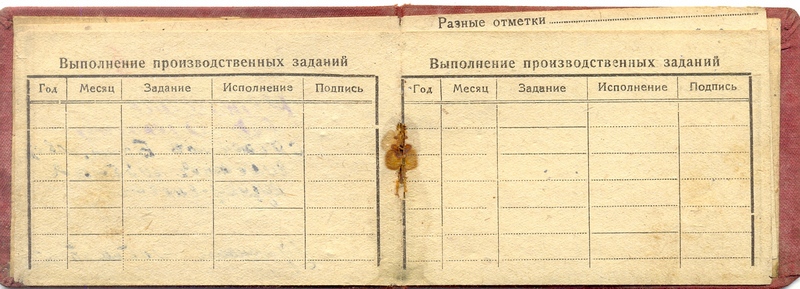 Разные отметки
Выполнение производственных заданий
Год Месяц Задание Исполнение Подпись
Выполнение производственных заданий
Год Месяц Задание Исполнение Подпись